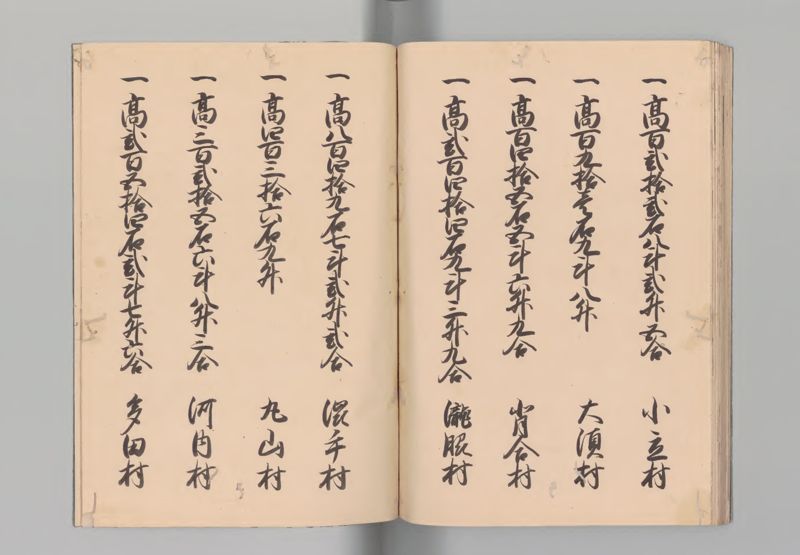 一高百弐拾弐石八斗弐升五合 小立村
一高百九拾壱石九斗八升 大須村
一高百四拾五石五斗六升九合 肖合村
一高弐百四拾四石九斗三升九合 瀧脇村
一高八百四拾九石七斗弐升弐合 村
一高四百三拾六石九升 丸山村
一高三百弐拾五石六斗八升三合 河内村
一高弐百五拾四石弐斗七升六合 多田村